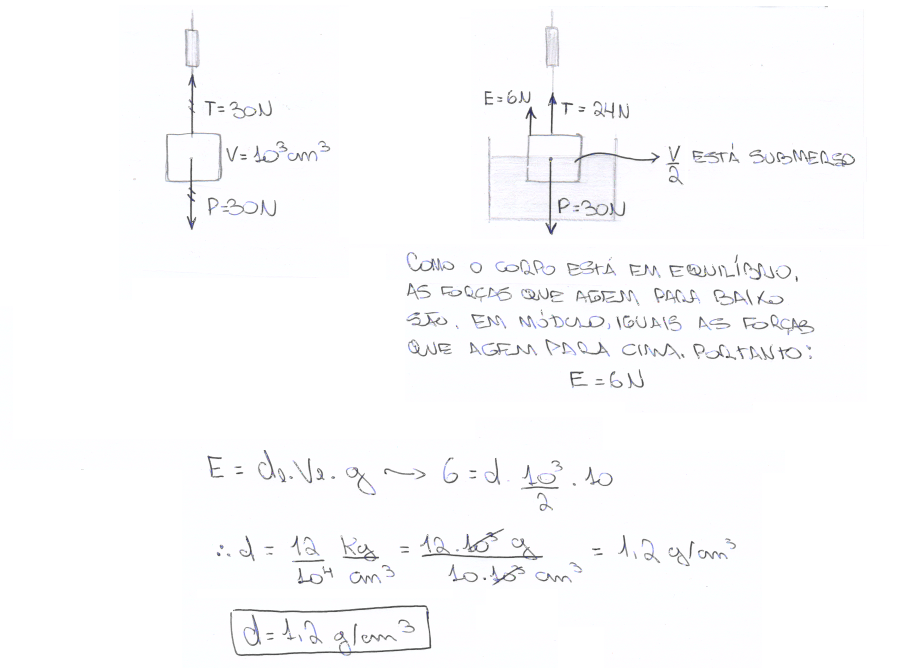 T=30N
V=10³cm³
P=30N
E=6N
T=24N
V/2 ESTÁ SUBMERSO
P=30N
COMO O CORPO ESTÁ EM EQUILÍBRIO,
AS FORÇAS QUE AGEM PARA BAIXO
SÃO, EM MÓDULO, IGUAIS AS FORÇAS
QUE AGEM PARA CIMA. PORTANTO:
E=6N
E = dl.Vl.g ⟿ 6=d.10³/2.10
∴ d = 12/10⁴ Kg/cm³ = 12.10³ g/10.10³ cm³ = 1,2 g/cm³
d=1,2 g/cm³